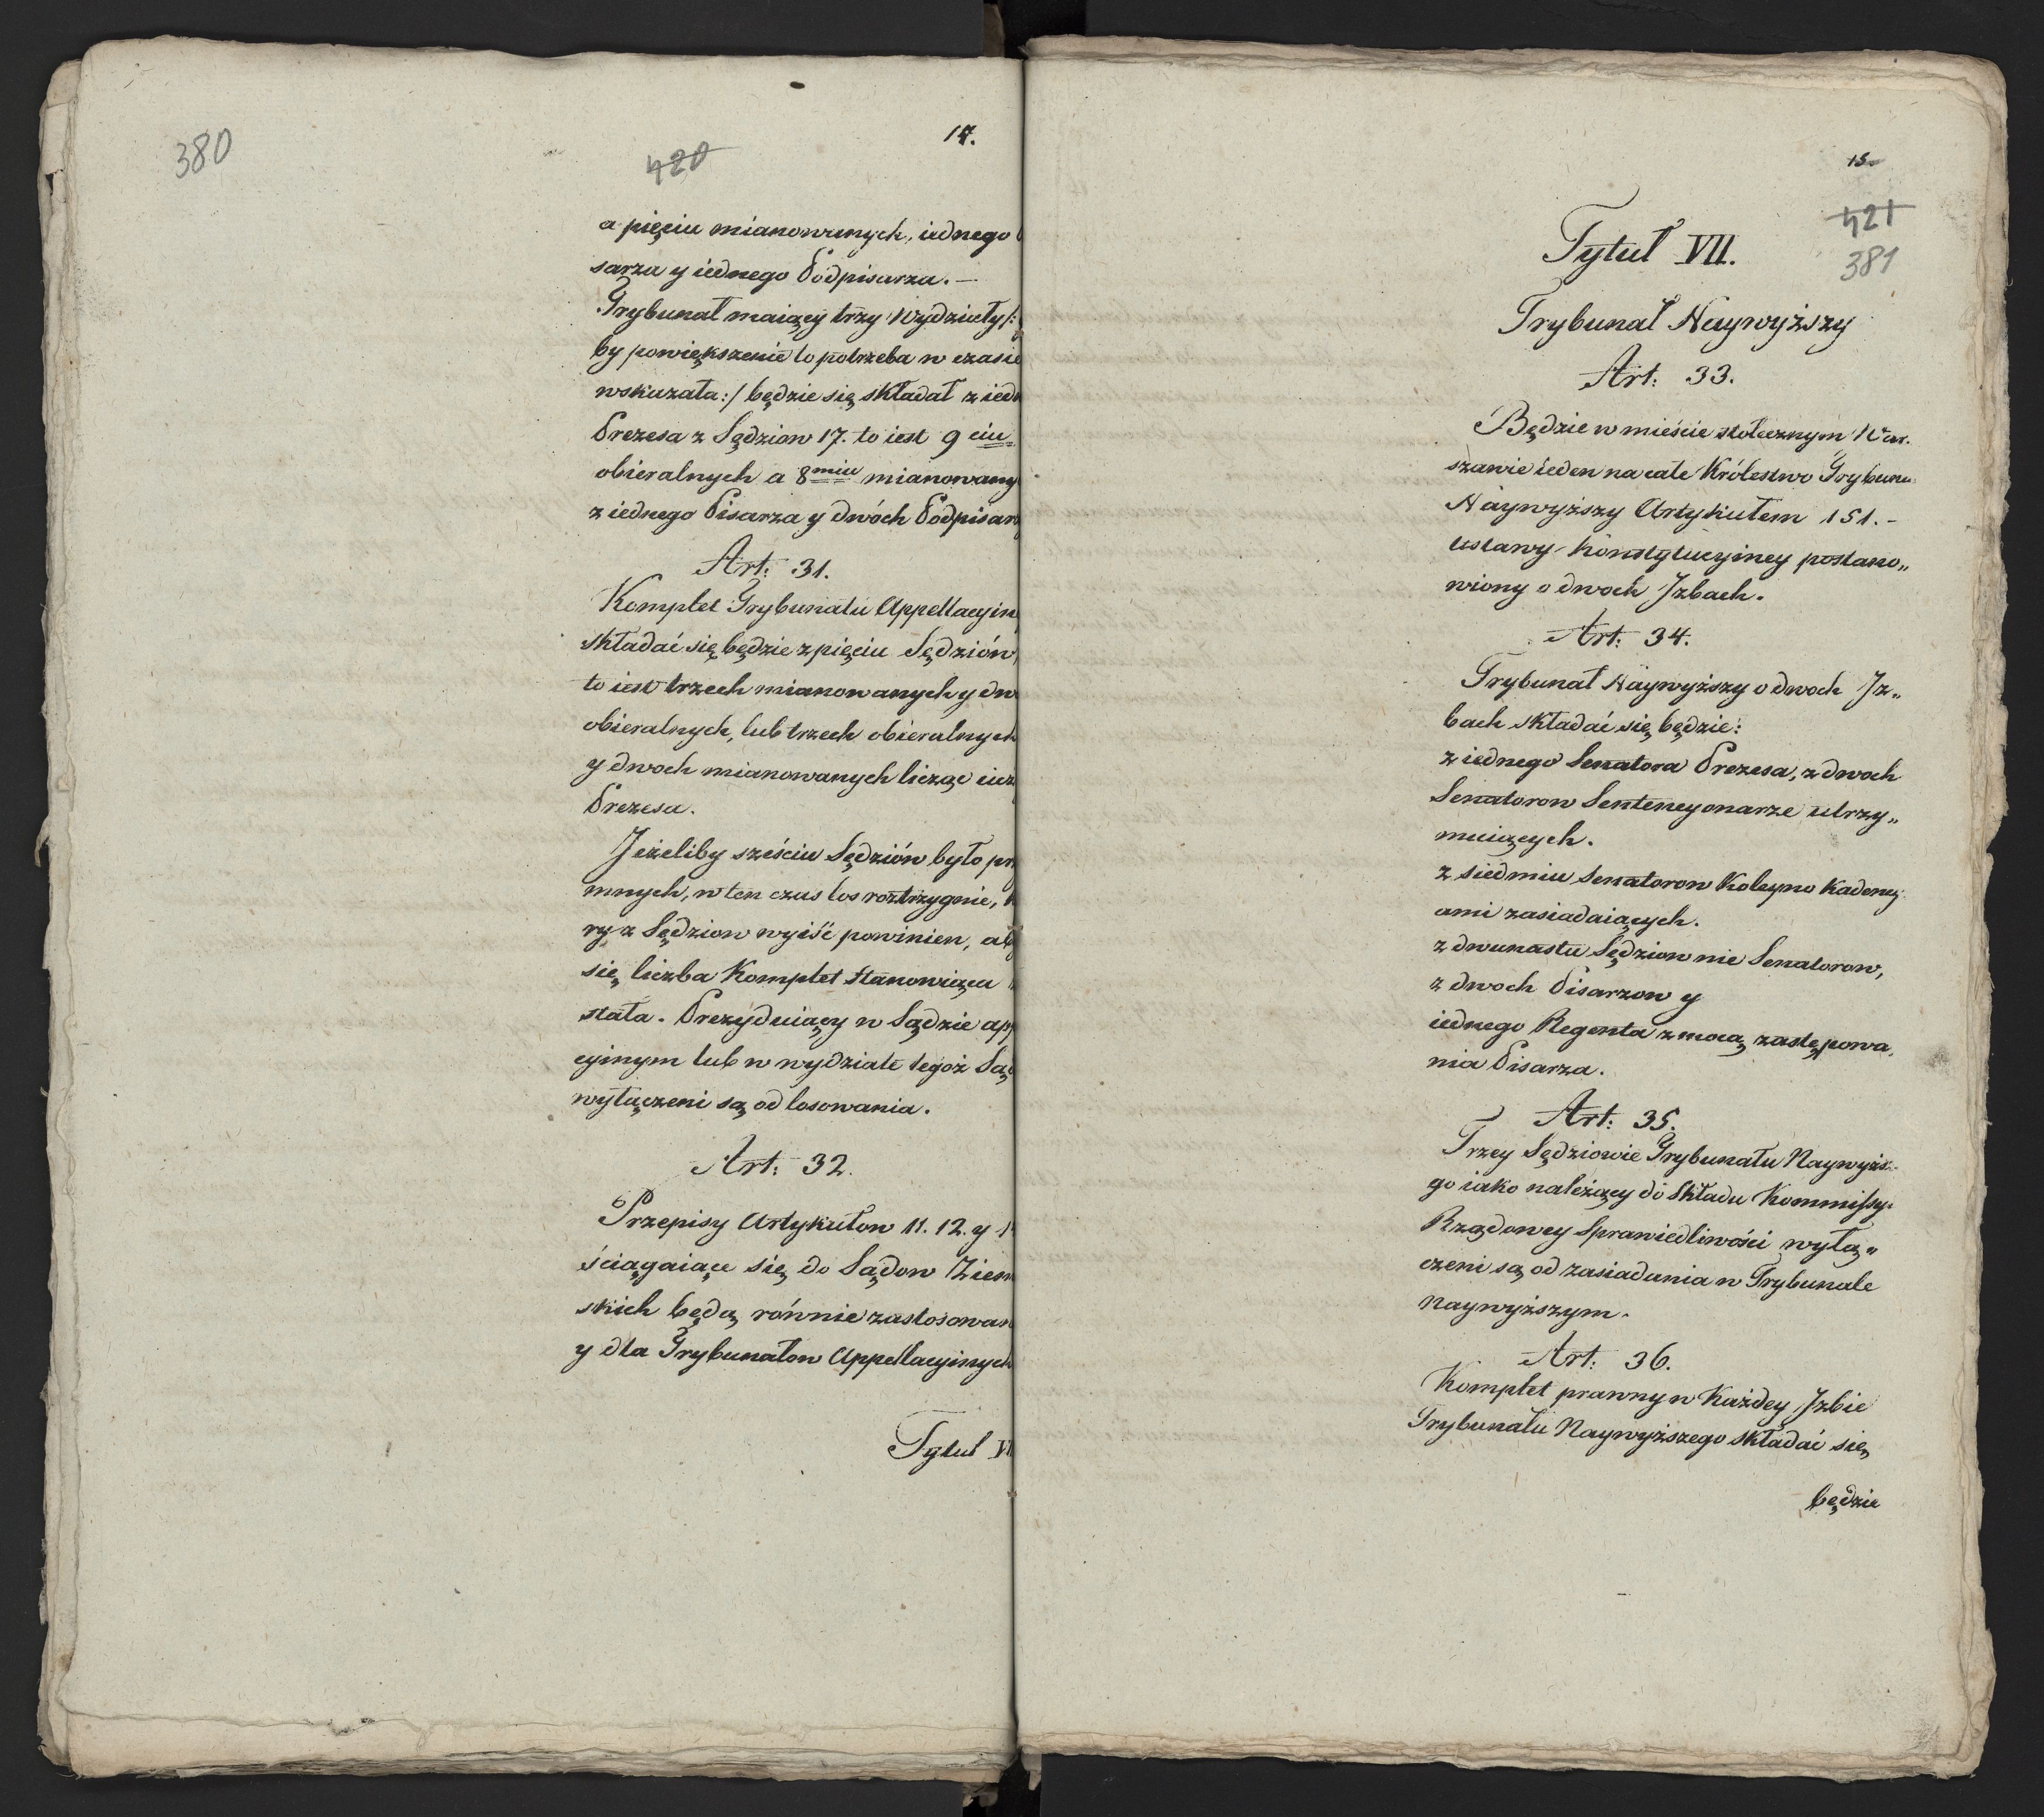 380
420
14.
a pięciu mianowanych, iednego
sarza y iednego Podpisarza. —
Trybunał maiący trzy Wydziały /:
by powiększenie to potrzeba w czasie
wskazała :/ będzie się składał z iedn
Prezesa z Sędziow 17. to iest 9 ciu
obieralnych a 8miu mianowany
z iednego Pisarza y dwóch Podpisarz
Art: 31.
Komplet Trybunału Appellacyin
składać się będzie z pięciu Sędziów,
to iest trzech mianowanych y dw
obieralnych, lub trzech obieralnych
y dwoch mianowanych licząc w
Prezesa.
Jeżeliby sześciu Sędziów było pr
mnych, w ten czas los roztrzygnie,
ry z Sędziow wyiść powinien, ab
się liczba Komplet stanowiąca
stała. Prezyduiący w Sądzie app
cyinym lub w wydziale tegoż Sąd
wyłączeni są od losowania.
Art: 32.
Przepisy Artykułow 11. 12. y 1
ściągaiące się do Sądow Ziem
skich będą rownie zastosowan
y dla Trybunałow Appellacyinych
Tytuł VII
15
421
381
Tytuł VII.
Trybunał Naywyższy
Art: 33.
Będzie w mieście stołecznym War.
szawie ieden na całe Królestwo Trybuna
Naywyższy Artykułem 151. –
Ustawy Konstytucyiney postano„
wiony o dwoch Izbach.
Art: 34.
Trybunał Naywyższy o dwoch Iz„
bach składać się będzie:
z iednego Senatora Prezesa, z dwoch
Senatorow Sentencyonarze utrzy„
muiących.
z siedmiu Senatorow Koleyno Kadency
ami zasiadaiących.
z dwunastu Sędziow nie Senatorow,
z dwoch Pisarzow y
iednego Regenta z mocą zastępowa
nia Pisarza.
Art: 35.
Trzey Sędziowie Trybunału Naywyżs
go iako należący do Składu Kommissyi
Rządowey Sprawiedliwości wyłą„
czeni są od zasiadania w Trybunale
Naywyższym.
Art: 36.
Komplet prawny w Każdey Izbie
Trybunału Naywyższego składać się
będzie